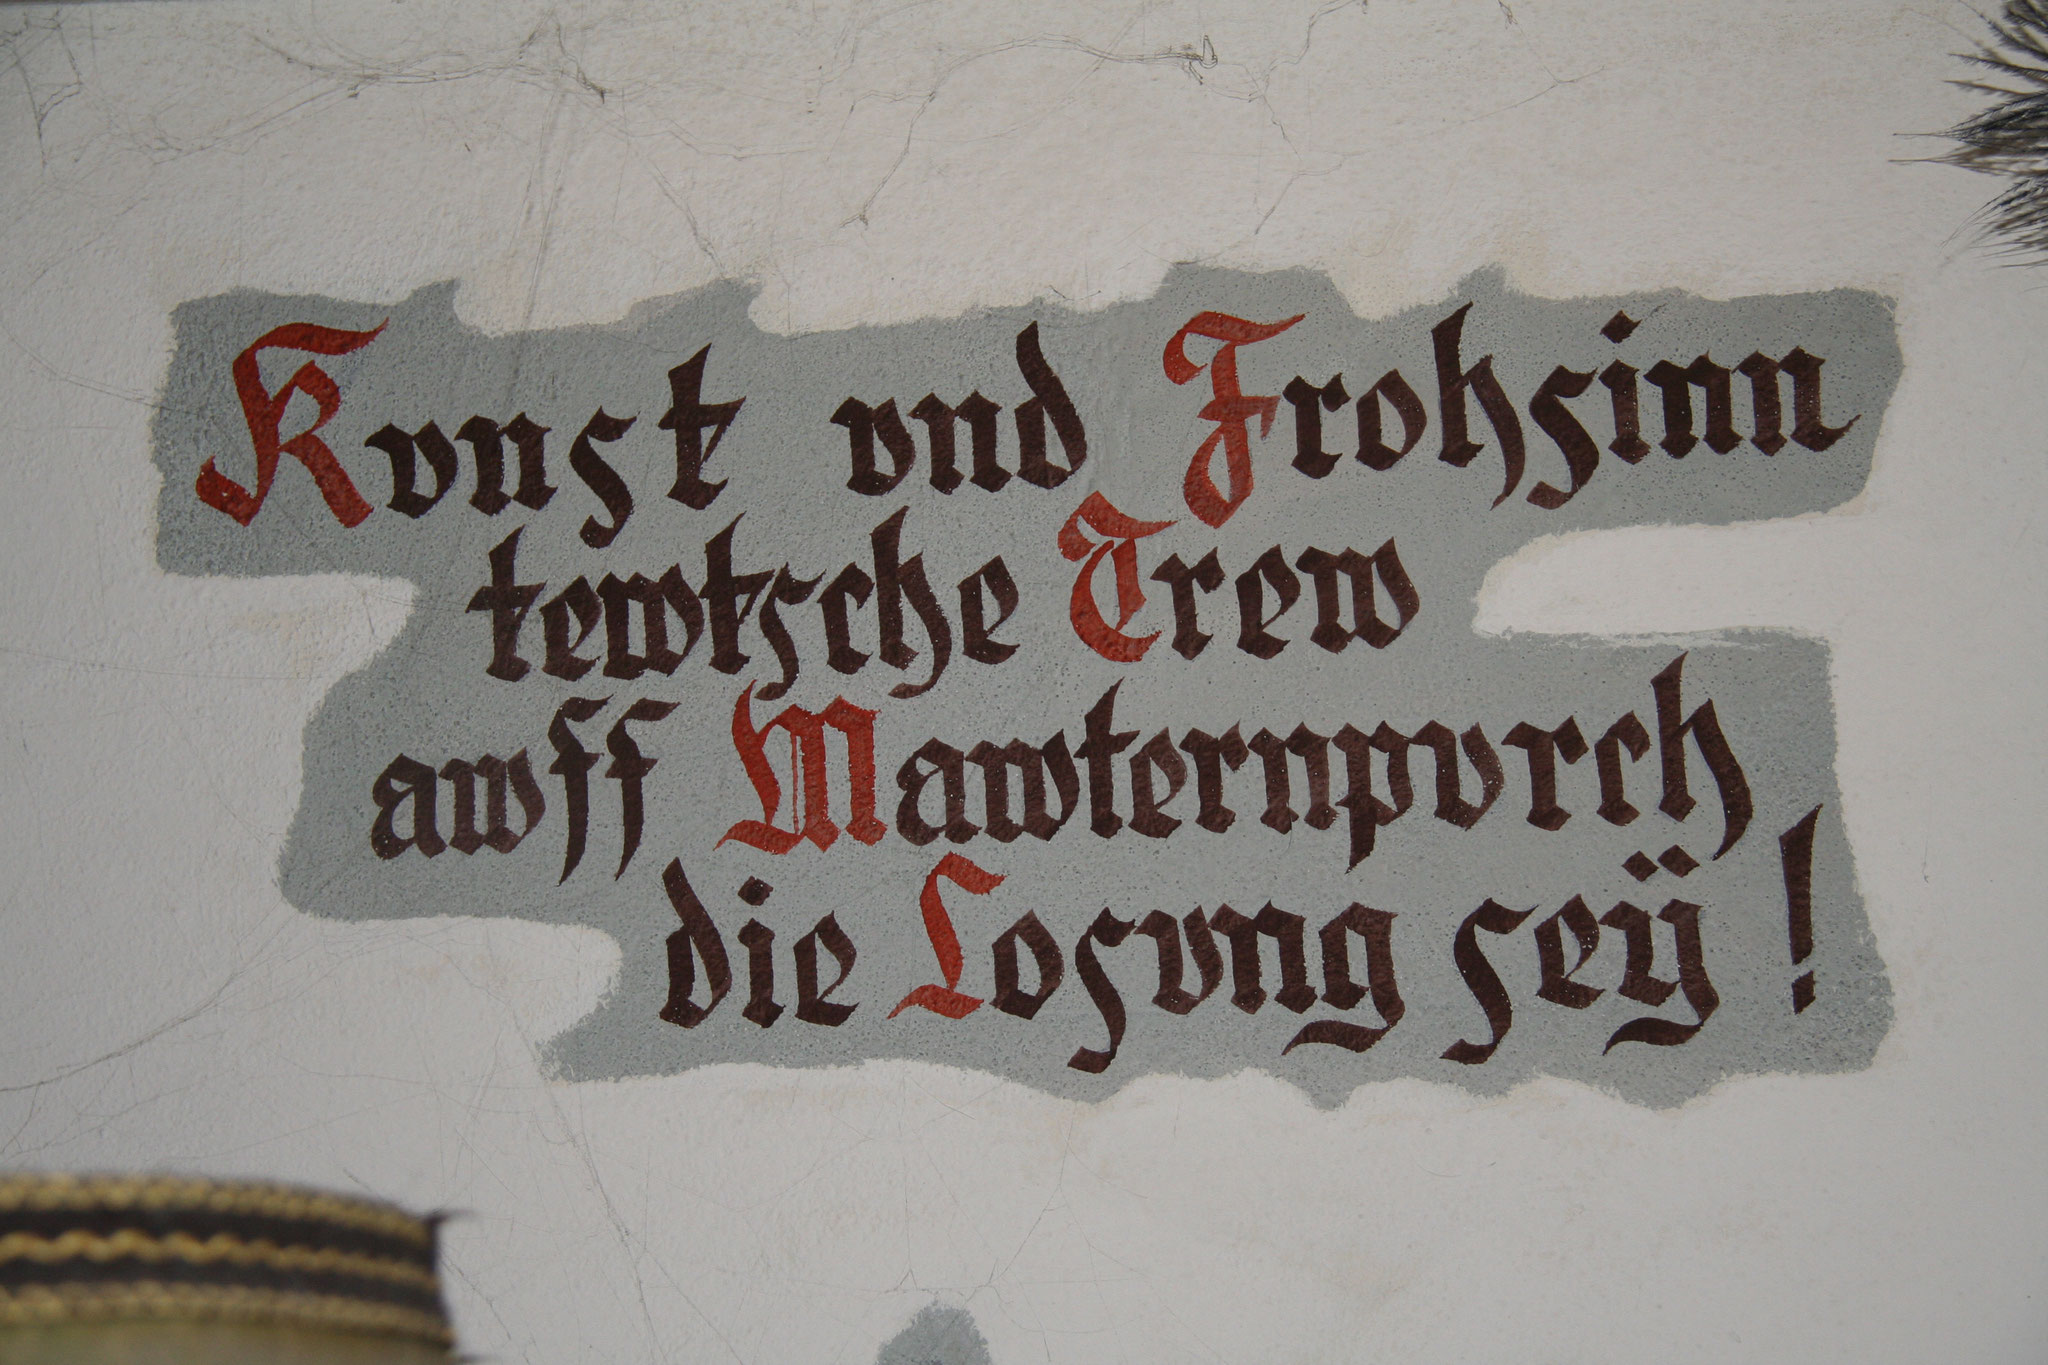 Kvnst vnd Frohsinn
tewtsche Trew
awff Mawternpvrch
die Losvng seÿ!